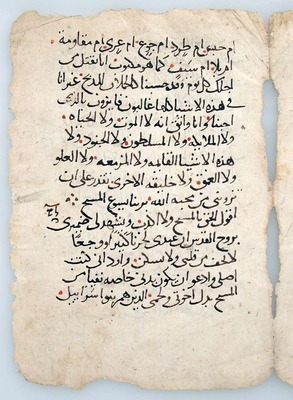 ام حبس ام طرد ام جوع ام عري ام مقاومة
ام بلا ام سيف كما هو مكتوب انا نقتل من
اجلك كل يوم وقد حسبنا كالحملان للذبح غير انا
في هذه الاشيا كلها غالبون فايزون بالذي
احبنا وانا واثق انه لا الموت ولا الحياه
ولا الملايكة ولا السلاطين ولا الجنود ولا
هذه الاشيا القايمه ولا المزمعه ولا العلو
ولا العمق ولا خليقه الاخرى تقدر على ان
من محبة الله بربنا يسوع المسيح
اقول الحق بالمسيح ولا اكذب ويشهد لي ضميري
بروح القدس ان عندي حزنا كبيرا ووجعا
من قلبي ولا يسكن كنت
اصلي وادعو ان يكون بدني خاصه من
المسيح بدل اخوتي ولحمي الذين هم بنوا اسراييل